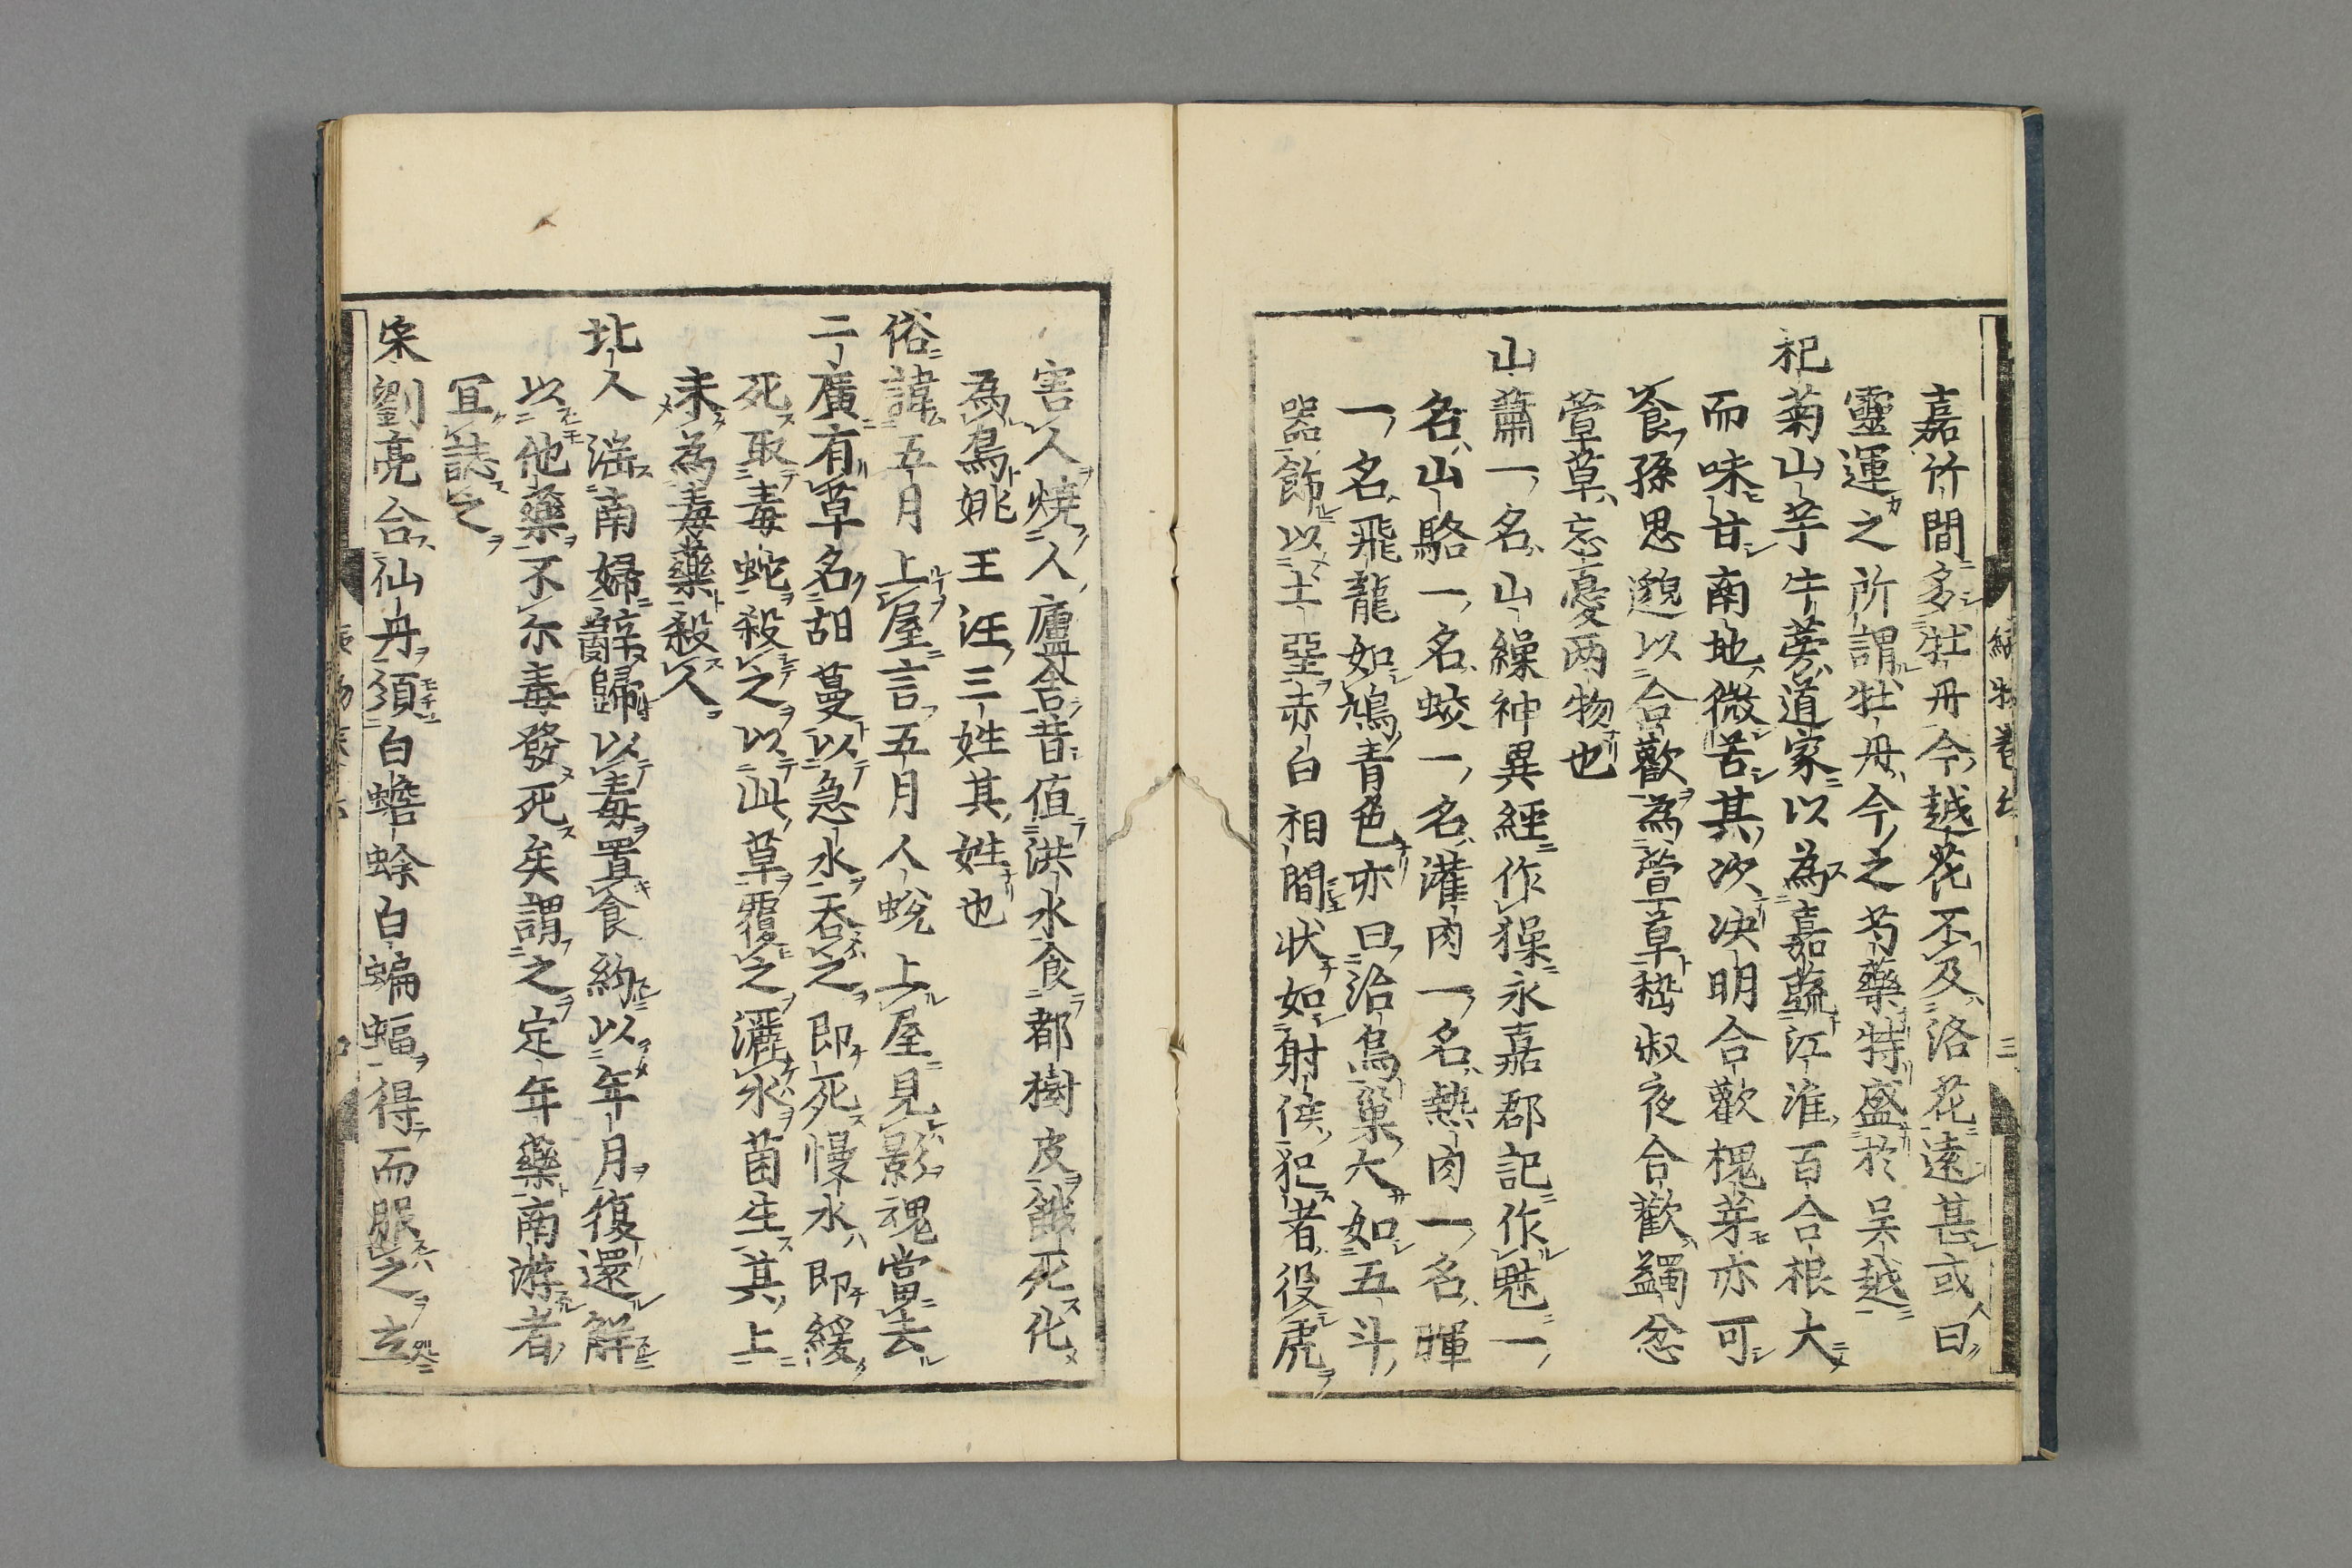 嘉竹間多牡丹今越花不及洛花遠甚或曰
靈運之所謂牡丹今之芍藥特盛於吴越
祀菊山芋牛蒡道家以為嘉蔬江淮百合根大
而味甘南地微苦其次决明合歡槐芽亦可
食孫思邈以合歡為萱草嵇叔夜合歡蠲忿
萱草忘憂两物也
山蕭一名山繰神異經作㺐永嘉郡記作魅一
名山駱一名蛟一名濯肉一名熱肉一名暉
一名飛龍如鳩青色亦曰治鳥巢大如五斗
器飾以土堊赤白相間狀如射侯犯者役虎
害人燒人廬舍昔值洪水食都樹皮餓死化
為鳥姚王汪三姓其姓也
俗諱五月上屋言五月人蛻上屋見影魂當去
二廣有草名胡蔓以急水吞之即死慢水即緩
死取毒蛇殺之以此草覆之灑水菌生其上
末為毒藥殺人
北人滛南婦辭歸以毒置食約以年月復還解
以他藥不尓毒發死矣謂之定年藥南游者
宜誌之
宋劉亮合仙丹須白蟾蜍白蝙蝠得而服之立